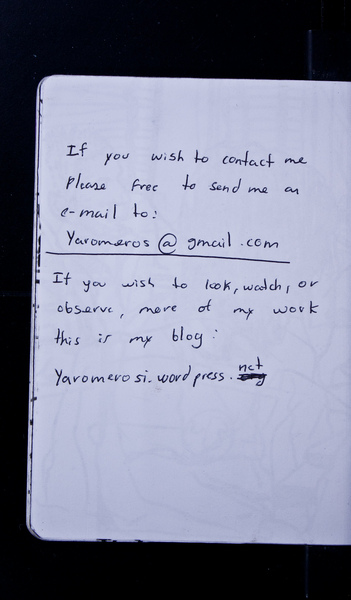 If you wish to contact me
Please free to send me an
e-mail to:
Yaromeros @ gmail .com
If you wish to look, watch, or
observe, more of my work
this is my blog:
Yaromerosi.wordpress.net